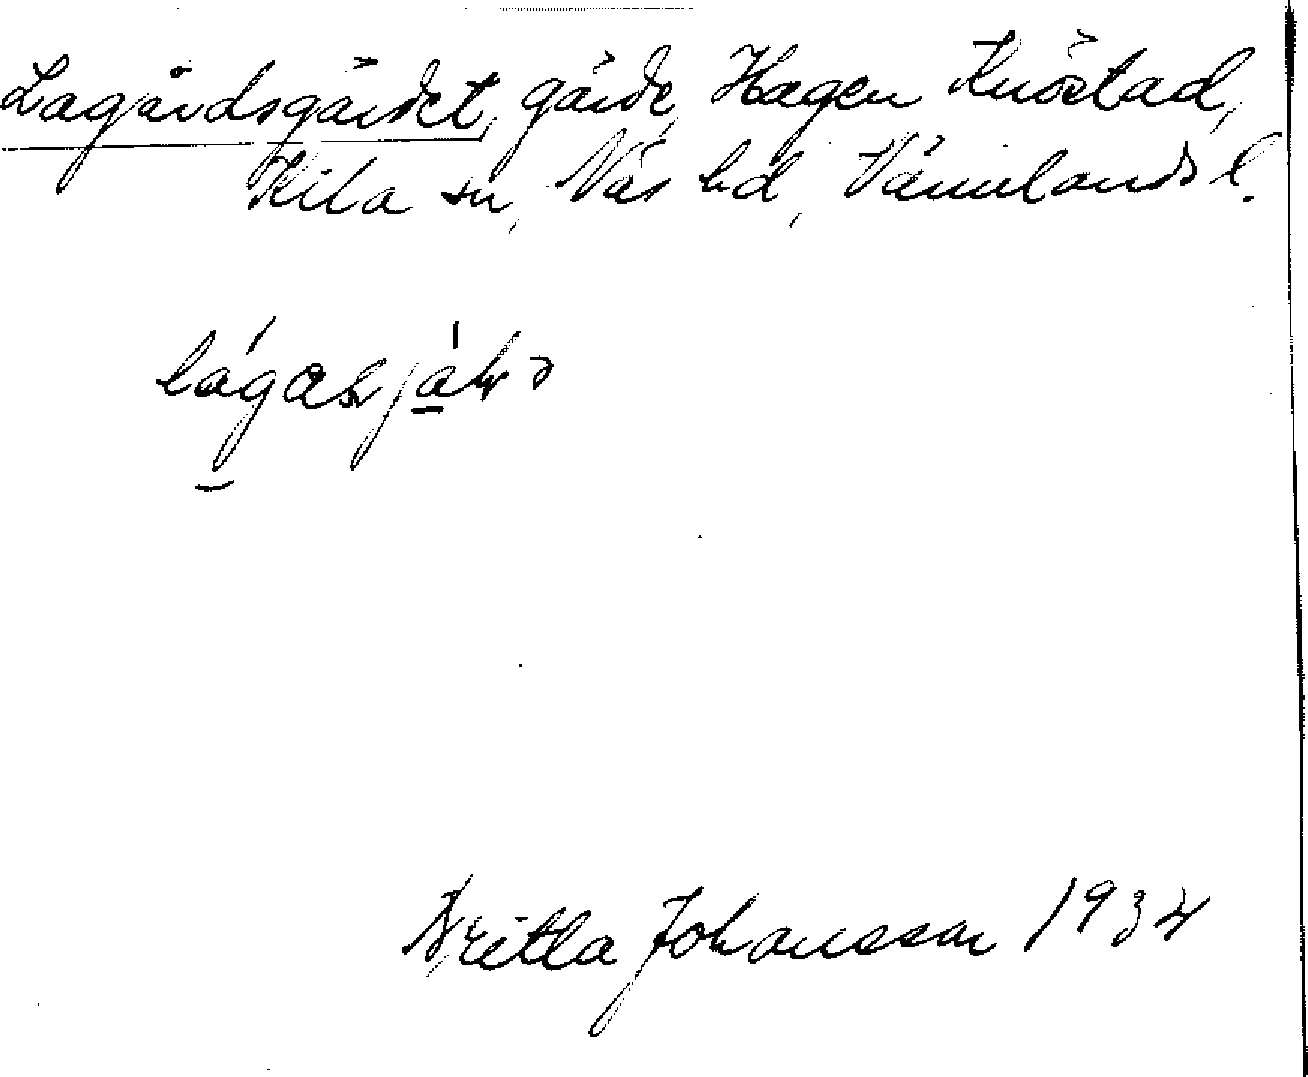 Lagårdsgärdet, gärde, Hagen Knöstad,
Kila sn, Näs hd, Värmlands l.
Britta Johansson 1934